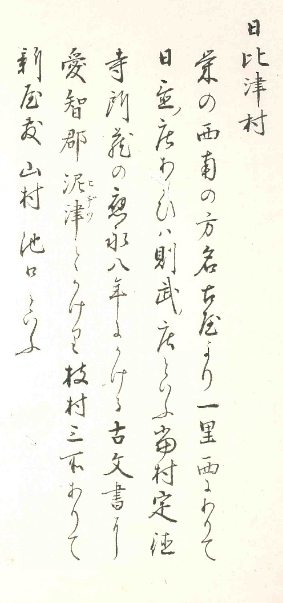 日比津村
栄の西南の方名古屋より一里西にありて
日置庄あるひハ則武庄といふ当村定徳
寺所蔵の応永八年にかける古文書に
愛智郡泥津とかけり枝村三所ありて
ヒヂツ
新屋敷山村池口といふ